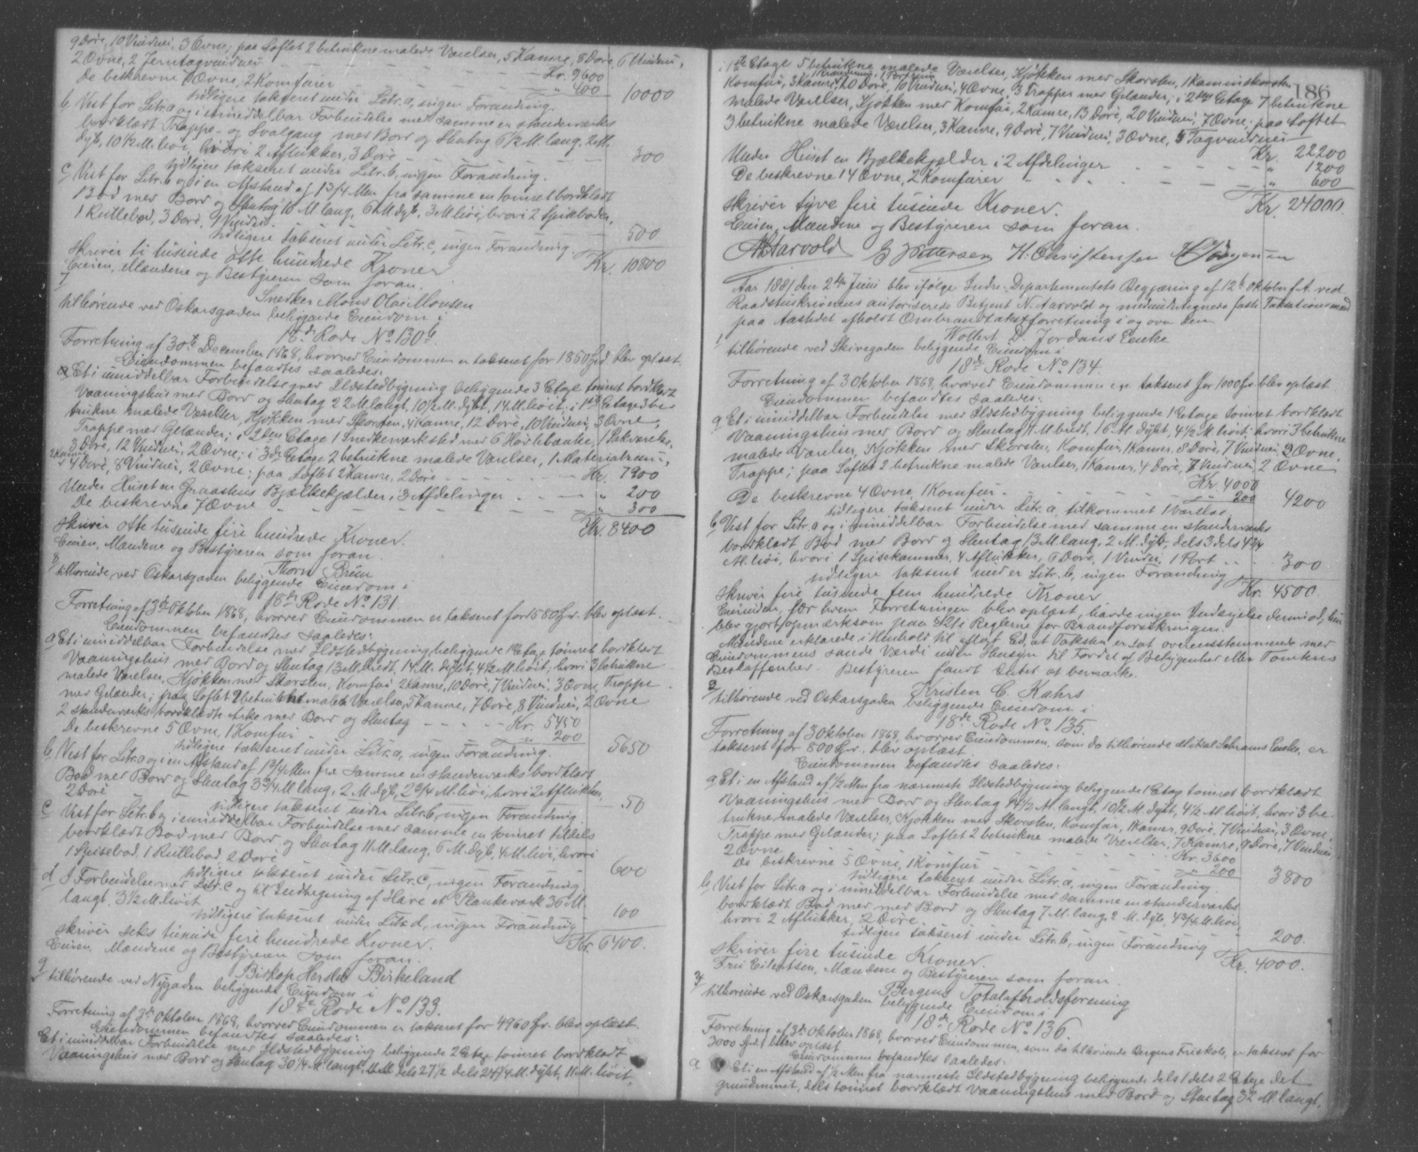 9 Döre, 10 Vinduer, 3 Ovne; paa Loftet 2 betrukne malede Værelser, 5 Kamre, 8 Döre, 6 Vinduer,
2 Ovne, 2 Jerntagvinduer Kr. 9600
De beskrevne Ovne, 2 Komfurer " 400 10000
tidligere takseret under Litr. a, ingen Forandring.
b, Vest for Litr. a og i umiddelbar Forbindelse med samme en standerværks
bordklædt Trappe- og Svalgang med Bord og Hentag 6 1/2 M. lang, 2 M.
dyb, 10 1/2 M. höi, hvori 2 Aflukker, 3 Döre 300
tidligere takseret under Litr. b, ingen Forandring.
c, Vest for Litr. b og i en Afstand af 1 3/4 Mtr fra samme en tömret bordklædt
Bod med Bord og Hentag 10 M. lang, 6 M. dyb, 3 M. höi, hvori 2 Spiseboder,
1 Rullebod, 3 Döre, Vinduer 500
tidligere takseret under Litr. c, ingen Forandring.
skriver ti tusinde otte hundrede Kroner Kr. 10800
Eieren, Mændene og Bestyreren som foran.
7 Snedker Mons Olai Monsen
tilhörende ved Oskarsgaden beliggende Eiendom i
18de Rode No 130 b.
Forretning af 30te December 1868, hvorved Eiendommen er takseret for 1860 Spd. blev oplæst.
Eiendommen befandtes saaledes:
a, Et i umiddelbar Forbindelse med Ildstedbygning beliggende 3 Etage tömret bordklædt
Vaaningshus med Bord og Hentag 22 M. langt, 10 1/2 M. dybt, 14 M. höit; i 1ste Etage 3 be-
trukne malede Værelser, Kjökken med Skorsten, 4 Kamre, 12 Döre, 10 Vinduer, 3 Ovne,
Trappe med Gelænder; i 2den Etage 1 Snedkerværksted med 6 Hövlebænke,
3 Döre, 12 Vinduer, 2 Ovne; i 3die Etage 2 betrukne malede Værelser, 1 Materialrum,
2 Kamre, 4 Döre, 8 Vinduer, 2 Ovne; paa Loftet 2 Kamre, 2 Döre Kr. 7900
Under Huset en Graastens Bjælkekjelder, 3 Afdelinger " 200
De beskrevne 7 Ovne " 300
skriver otte tusinde fire hundrede Kroner. Kr. 8400
Eieren, Mændene og Bestyreren som foran.
8 Thorn Brün
tilhörende ved Oskarsgaden beliggende Eiendom i
18de Rode No 131
Forretning af 3die Oktober 1868, hvorved Eiendommen er takseret for 1580 Spd. blev oplæst.
Eiendommen befandtes saaledes:
a, Et i umiddelbar Forbindelse med Ildstedbygning beliggende 1 Etage tömret bordklædt
Vaaningshus med Bord og Hentag 13 M. bredt, 14 M. dybt, 4 1/2 M. höit, hvori 3 betrukne
malede Værelser, Kjökken med Skorsten, Komfur, 2 Kamre, 10 Döre, 7 Vinduer, 3 Ovne, Trappe
med Gelænder; paa Loftet 2 betrukne malede Værelser, 5 Kamre, 7 Döre, 8 Vinduer, 2 Ovne
2 standerværks bordklædte Arke med Bord og Hentag Kr. 5450
De beskrevne 5 Ovne, 1 Komfur " 200 5650
tidligere takseret under Litr. a, ingen Forandring.
b, Vest for Litr. a og i en Afstand af 1 3/4 Mtr fra samme en standerværks bordklædt
Bod med Bord og Hentag 3 3/4 M. lang, 2 M. dyb, 2 3/4 M. höi, hvori 2 Aflukker,
2 Döre 50
tidligere takseret under Litr. b, ingen Forandring.
c, Vest for Litr. b og i umiddelbar Forbindelse med samme en tömret tildels
bordklædt Bod med Bord og Hentag 11 M. lang, 6 M. dyb, 4 M. höi, hvori
1 Spisebod, 1 Rullebod, 2 Döre 600
tidligere takseret under Litr. c, ingen Forandring.
d, I Forbindelse med Litr. c og til Indhegning af Have et Plankeværk 36 M.
langt, 3 1/2 M. höit 100
tidligere takseret under Litr. d, ingen Forandring
skriver seks tusinde fire hundrede Kroner. Kr. 6400.
Eieren, Mændene og Bestyreren som foran.
9 Biskop Birkeland
tilhörende ved Nygaden beliggende Eiendom i
18de Rode No 133.
Forretning af 3die Oktober 1868, hvorved Eiendommen er takseret for 4960 Spd. blev oplæst.
Eiendommen befandtes saaledes:
Et i umiddelbar Forbindelse med Ildstedbygning beliggende 2 Etage tömret bordklædt
Vaaningshus med Bord og Hentag 30 1/4 M. langt, dels 27 1/2 dels 24 3/4 M. dybt, 11 M. höit,
186
i 1ste Etage 5 betrukne malede Værelser, Kjökken med Skorsten, 1 Kaminskorsten
Komfur, 3 Kamre, 20 Döre, 10 Vinduer, 4 Ovne, 3 Trapper med Gelænder; i 2den Etage 7 betrukne
malede Værelser, Kjökken med Komfur, 2 Kamre, 13 Döre, 20 Vinduer, 7 Ovne; paa Loftet
3 betrukne malede Værelser, 3 Kamre, 9 Döre, 7 Vinduer, 3 Ovne, 5 Tagvinduer Kr. 22200
Under Huset en Bjælkekjælder i 2 Afdelinger " 1200
De beskrevne 14 Ovne, 2 Komfurer " 600
skriver tyve fire tusinde Kroner. Kr. 24000.
Eieren, Mændene og Bestyreren som foran.
N. Aarvold G. Pettersen H. Christensen Jörgensen
Aar 1881 den 2den Juni blev ifölge Indre-Departementets Begjæring af 12te Oktober f. A. ved
Raadstuskriverens autoriserede Betjent N. Aarvold og undertegnede faste Taktionsmænd
paa Aastedet afholdt Ombrandtakstforretning i og over den
1 Wollert D. Jordans Enke
tilhörende ved Skivegaden beliggende Eiendom i
18de Rode No 134.
Forretning af 3 Oktober 1868, hvorved Eiendommen er takseret for 1000 Spd. blev oplæst
Eiendommen befandtes saaledes:
a, Et i umiddelbar Forbindelse med Ildstedbygning beliggende 1 Etage tömret bordklædt
Vaaningshus med Bord og Hentag M. bredt, 16 M. dybt, 4 1/2 M. höit; hvori 3 betrukne
malede Værelser, Kjökken med Skorsten, Komfur, 1 Kamer, 8 Döre, 7 Vinduer, 2 Ovne,
Trappe; paa Loftet 2 betrukne malede Værelser, 1 Kamer, 4 Döre, 7 Vinduer, 2 Ovne
Kr. 4000
De beskrevne 4 Ovne, 1 Komfur " 200 4200
tidligere takseret under Litr. a, tilkommet 1 Værelse.
b, Vest for Litr. a og i umiddelbar Forbindelse med samme en standerværks
bordklædt Bod med Bord og Hentag 13 M. lang, 2 M. dyb, dels 3 dels 4 3/4
M. höi, hvori 1 Spisekammer, 4 Aflukker, 6 Döre, 1 Vindu, 1 Port 300
tidligere takseret under Litr. b, ingen Forandring
skriver fire tusinde fem hundrede Kroner Kr. 4500.
Eierinden, for hvem Forretningen blev oplæst, havde ingen Indsigelse derimod, hun
blev gjort opmærksom paa § 21 i Reglerne for Brandforsikringen.
Mændene erklærede i Henhold til aflagt Ed at Taksten er sat overensstemmende med
Eiendommens sande Værdi uden Hensyn til Fordel af Beliggenhed eller Tomtens
Beskaffenhed. Bestyreren fandt Intet at bemærke.
2 Kristen C. Kahrs
tilhörende ved Oskarsgaden beliggende Eiendom i
18de Rode No 135.
Forretning af 3 Oktober 1868, hvorved Eiendommen, som da tilhörende Enke, er
takseret for 800 Spd. blev oplæst
Eiendommen befandtes saaledes:
a, Et i en Afstand af 1/2 Mtr fra nærmeste Ildstedbygning beliggende 1 Etage tömret bordklædt
Vaaningshus med Bord og Hentag M. langt, 10 1/2 M. dybt, 4 1/2 M. höit, hvori 3 be-
trukne malede Værelser, Kjökken med Skorsten, Komfur, 1 Kamer, 9 Döre, 7 Vinduer, 3 Ovne,
Trappe med Gelænder; paa Loftet 2 betrukne malede Værelser, 7 Kamre, 9 Döre, 7 Vinduer
2 Ovne Kr. 3600
De beskrevne 5 Ovne, 1 Komfur " 200 3800
tidligere takseret under Litr. a, ingen Forandring.
b, Vest for Litr. a og i umiddelbar Forbindelse med samme en standerværks
bordklædt Bod med med Bord og Hentag 7 M. lang, 2 M. dyb, 4 3/4 M. höi
hvori 2 Aflukker, 2 Döre. 200.
tidligere takseret under Litr. b, ingen Forandring
skriver fire tusinde Kroner Kr. 4000.
Fru Eilertsen, Mændene og Bestyreren som foran.
3 Bergens Totalafholdsforening
tilhörende ved Oskarsgaden beliggende Eiendom i
18de Rode No 136.
Forretning af 3die Oktober 1868, hvorved Eiendommen, som da tilhörende Bergens Friskole, er takseret for
3000 Spd. blev oplæst
Eiendommen befandtes saaledes:
a, Et i en Afstand af 1/2 Mtr fra nærmeste Ildstedbygning beliggende dels 1 dels 2 Etage det
grundmuret, dels tömret bordklædt Vaaningshus med Bord og Hentag 32 M. langt,